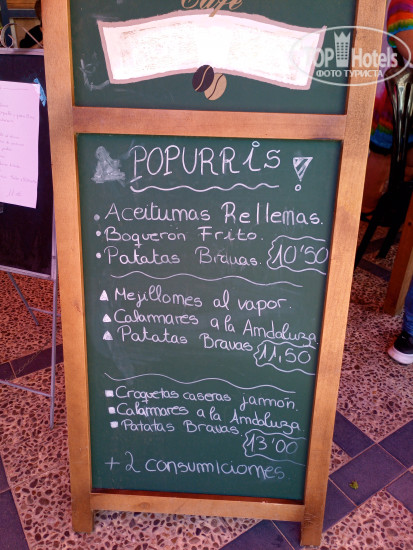 Café
TopHotels
ФОТО ТУРИСТА
POPURRIS!
• Aceitumas Rellemas.
• Boquerón Frito.
• Patatas Bravas. 10'50
▲ Mejillomes al vapor.
▲ Calamares a la Amdaluza
▲ Patatas Bravas. 11,50
▪ Croquetas caseras jammón.
▪ Calamares a la Amdaluza
▪ Patatas Bravas. 13'00
+ 2 consumiciomes